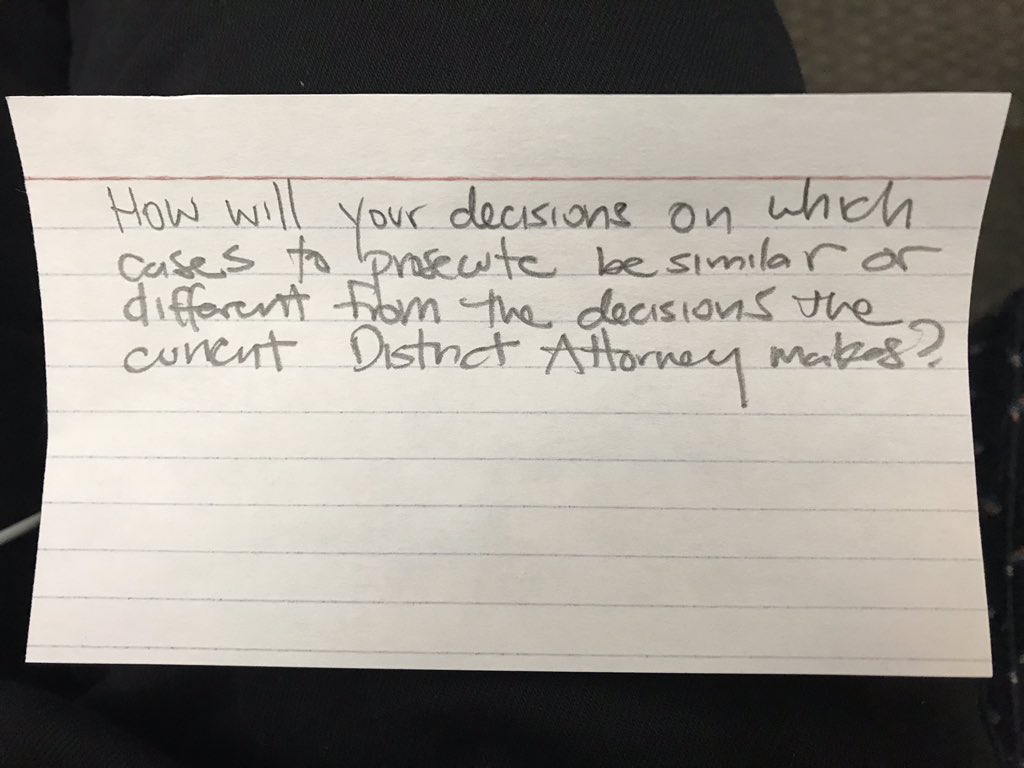 How will your decisions on which
cases to prosecute be similar or
different from the decisions the
current District Attorney makes?